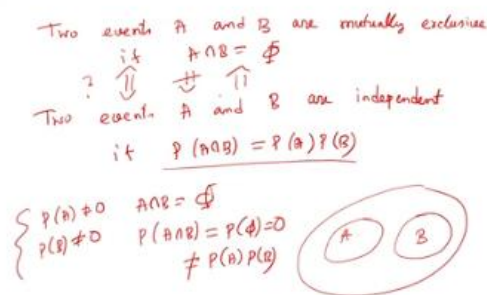 Two events A and B are mutually exclusive
if A∩B = ϕ
? ⇓ ⇎ ⇑
Two events A and B are independent
if P(A∩B) = P(A)P(B)
{ P(A) ≠ 0 A∩B = ϕ
P(B) ≠ 0 P(A∩B) = P(ϕ) = 0
≠ P(A)P(B)
A B